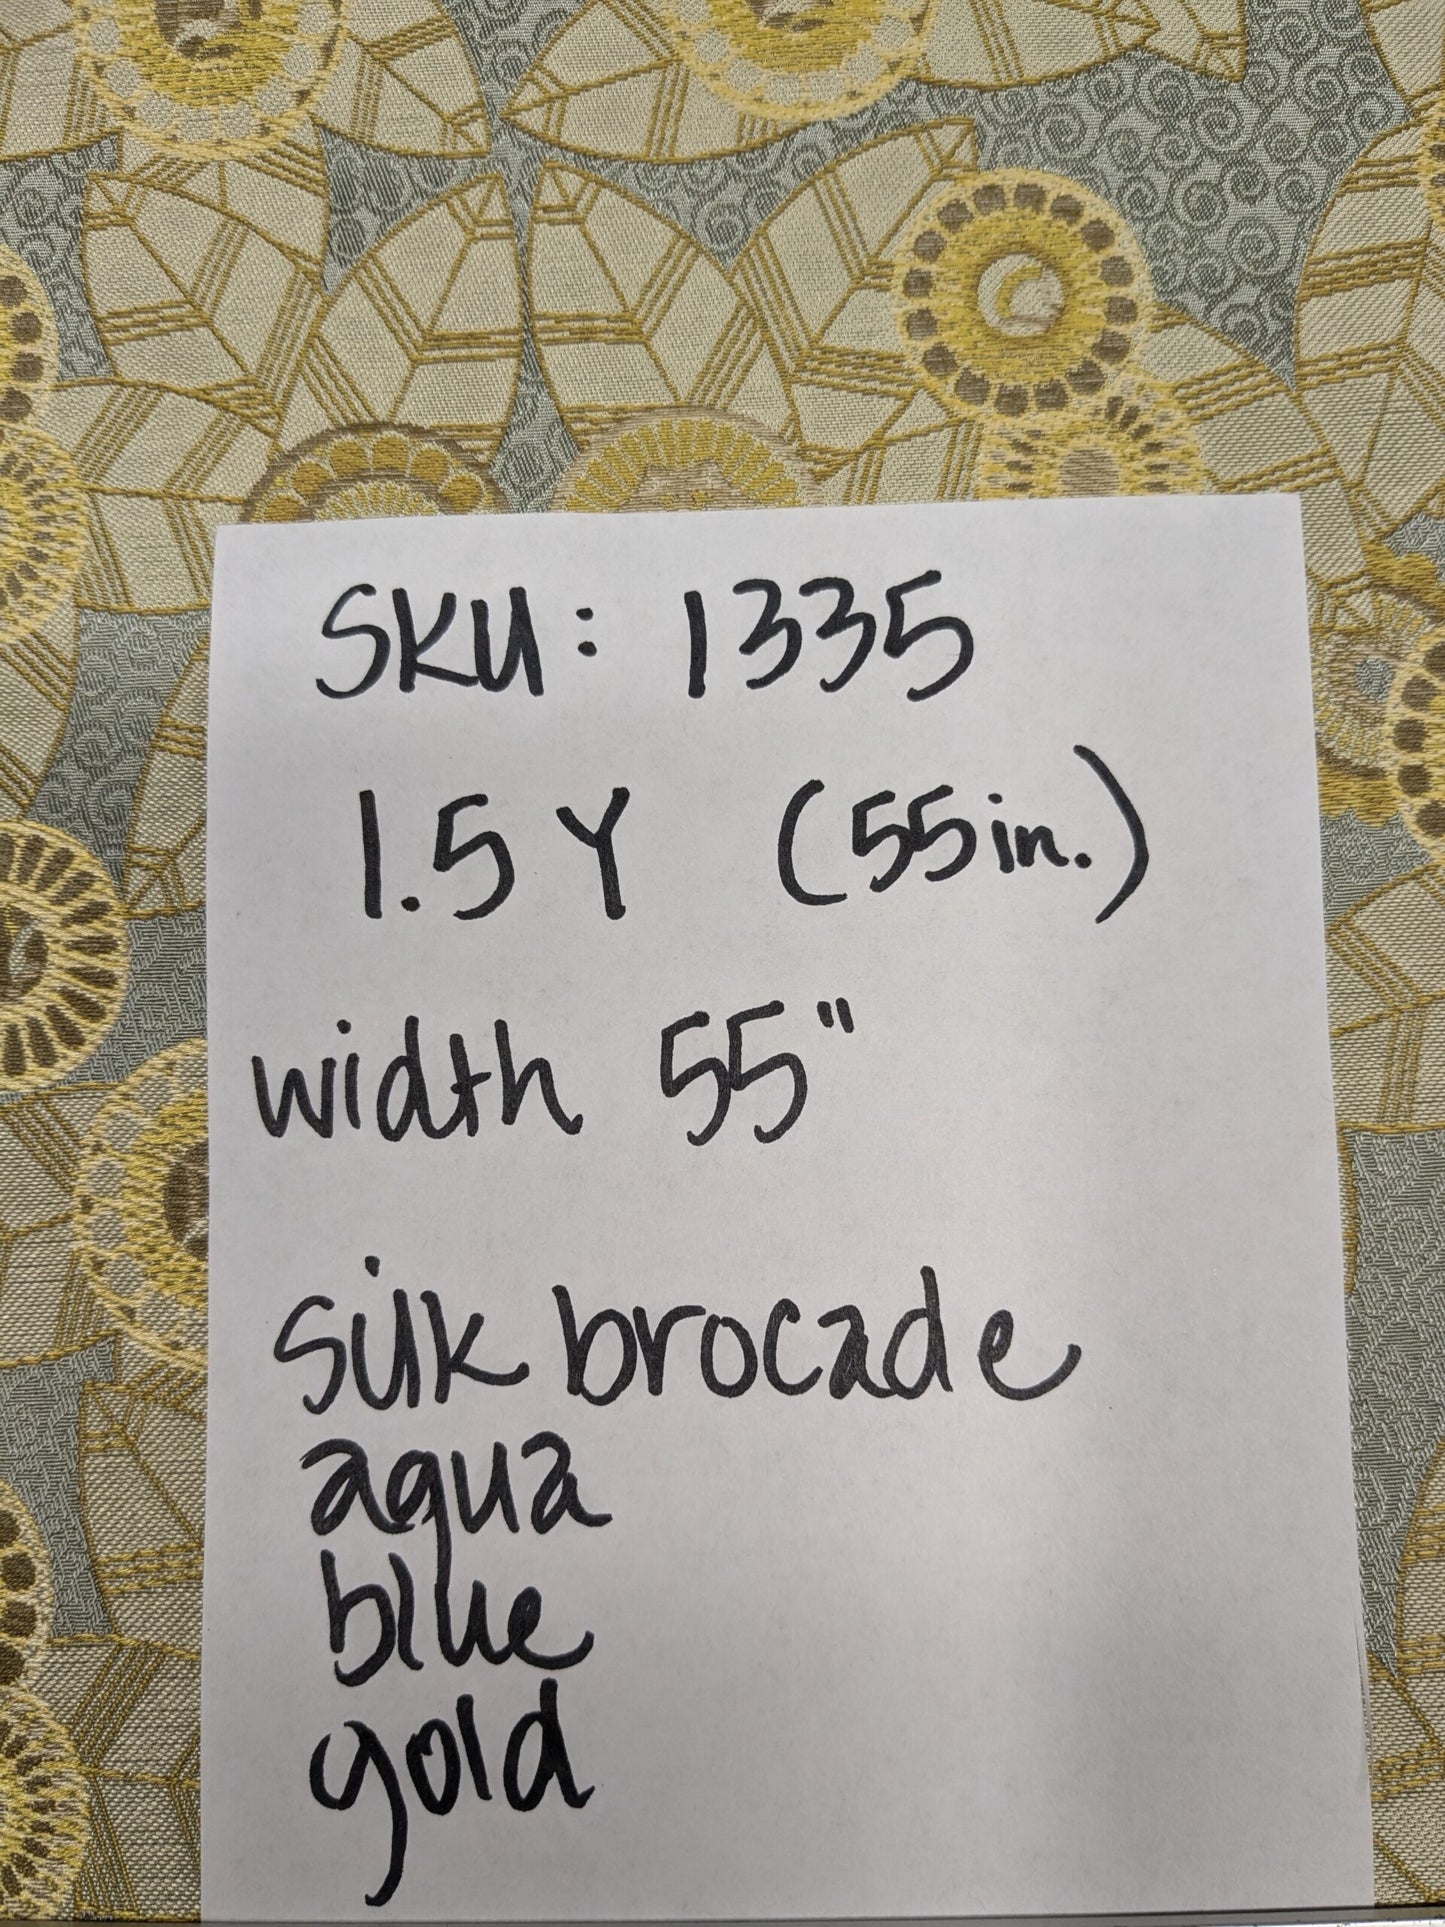 SKU: 1335
1.5 Y (55in.)
width 55"
silk brocade
aqua
blue
gold